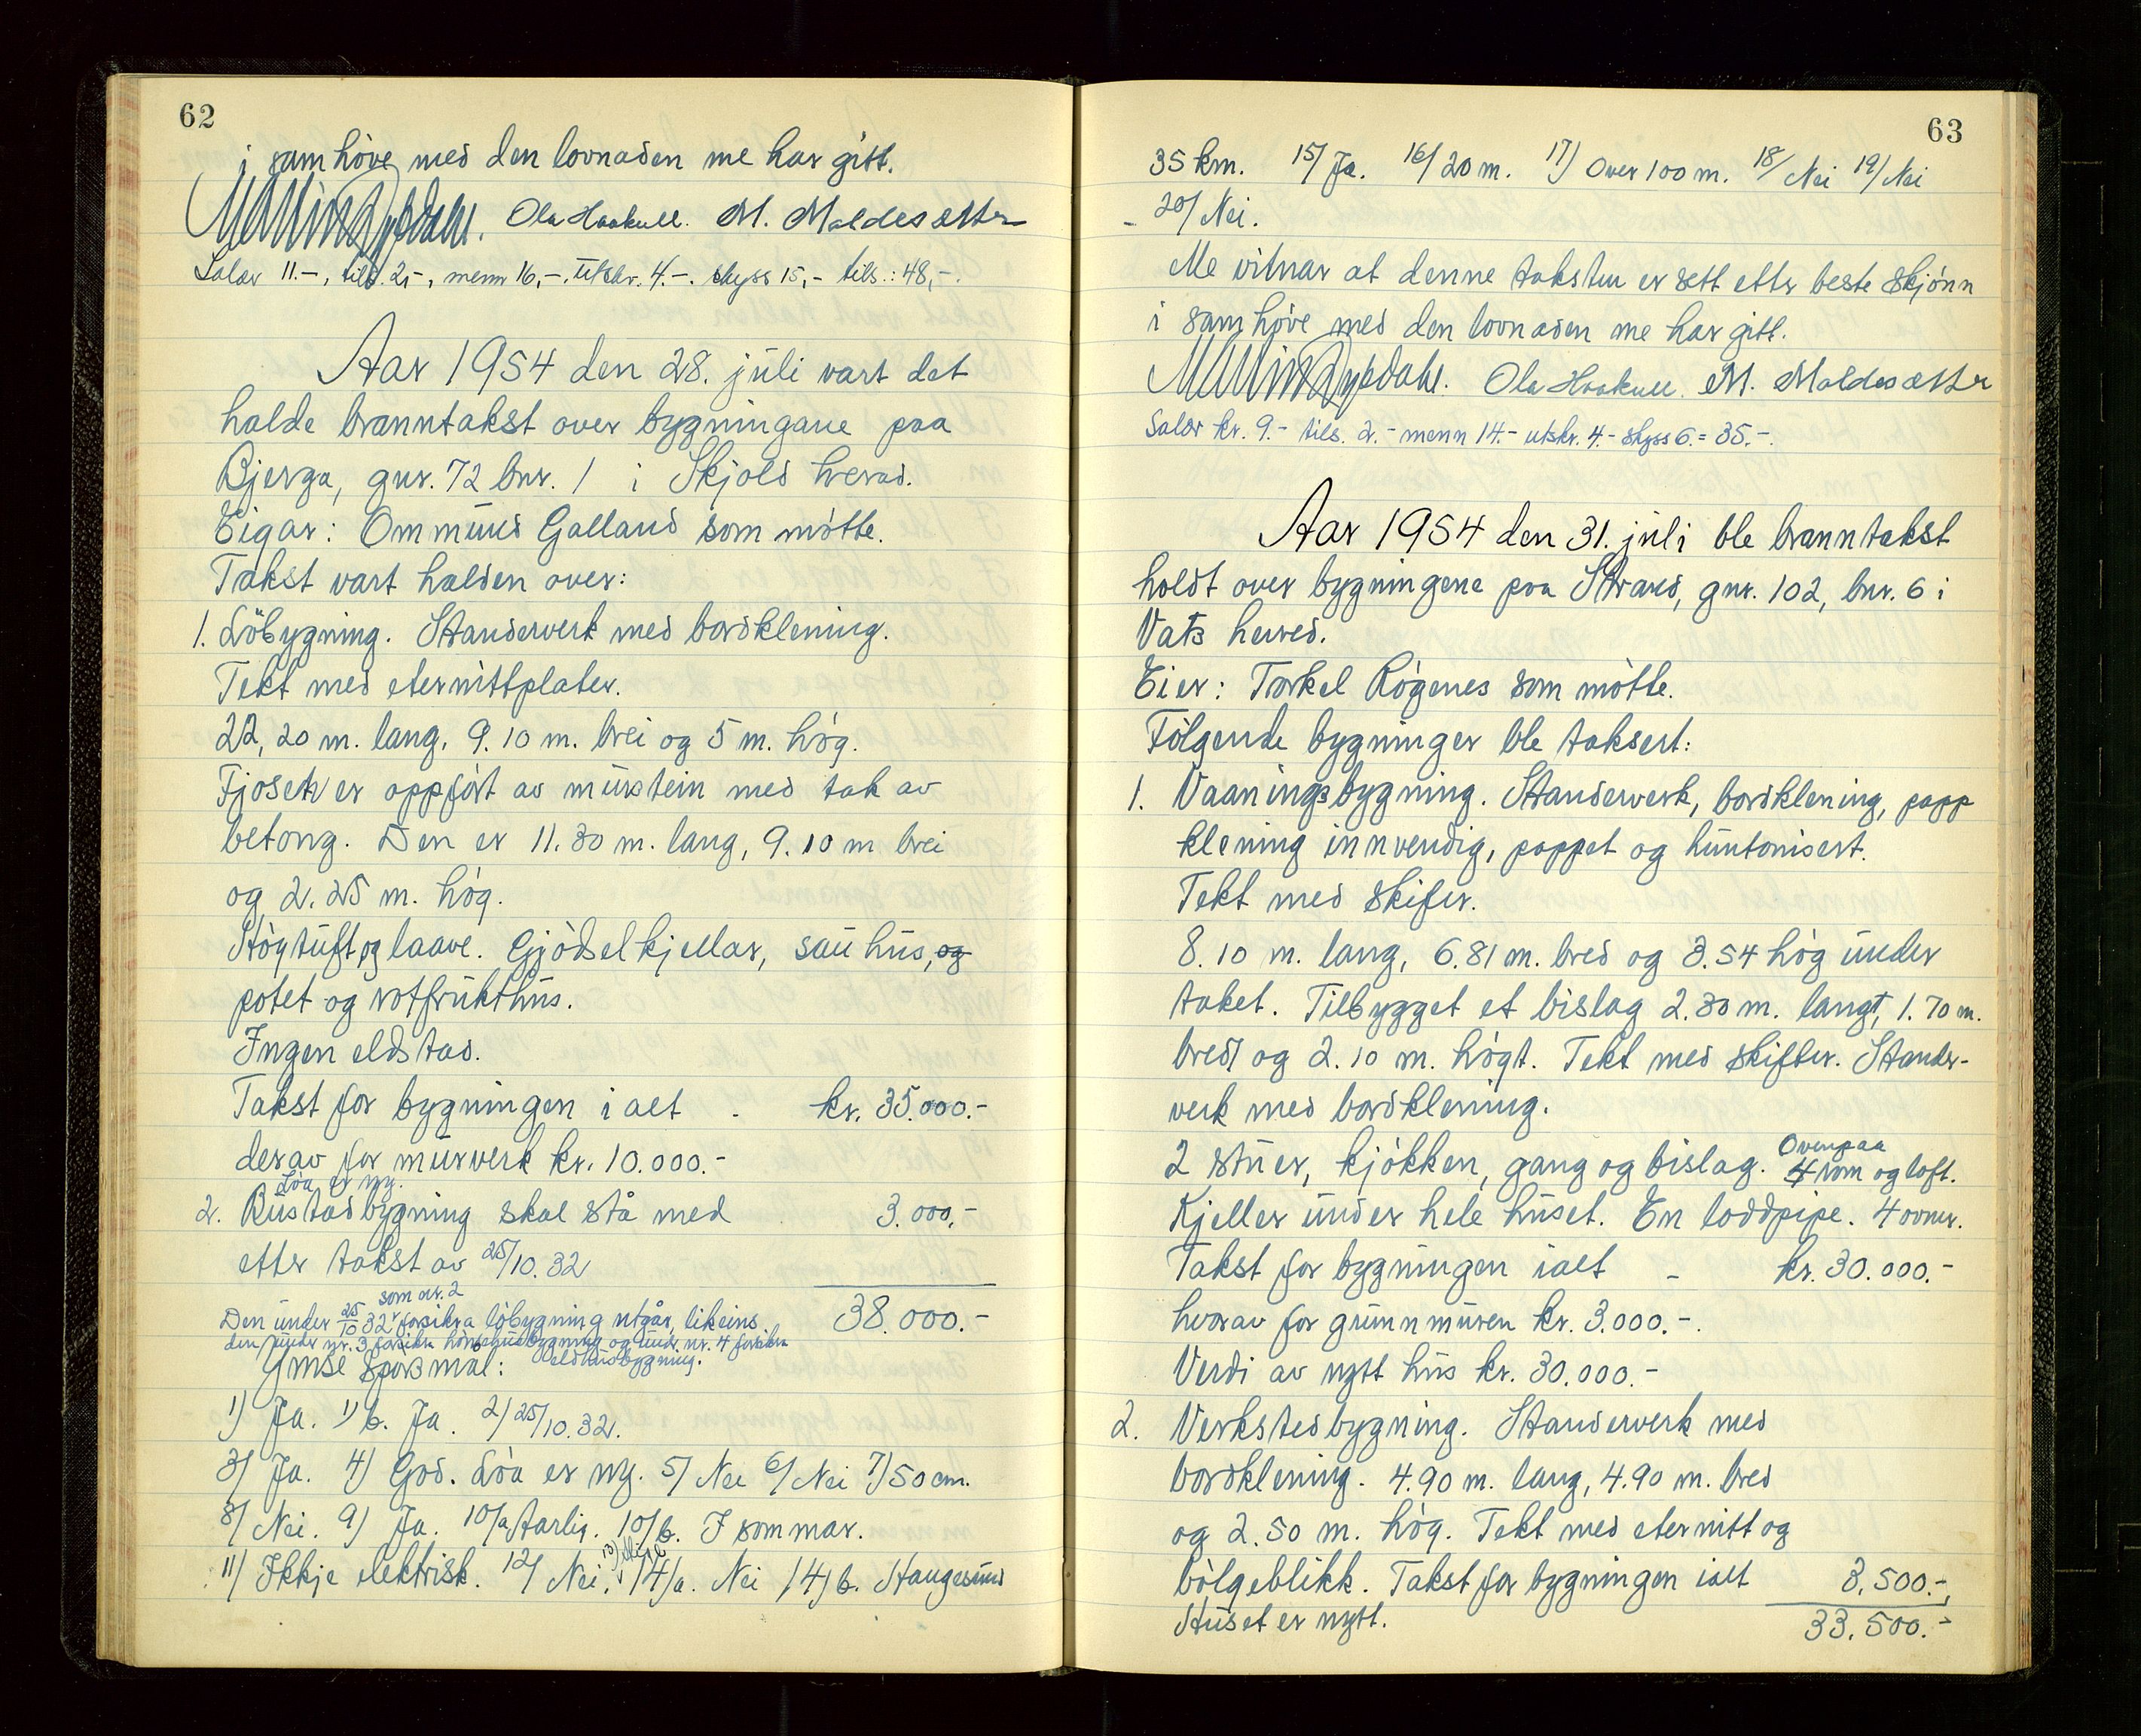 62
i samhöve med den lovnaden me har gitt.
Ola Haakull. M. Maldesæter
Salær 11.-, tils. 2,-, menn 16,-. utskr. 4.-. skyss 15,- tils.: 48,-.
Aar 1954 den 28. juli vart det
halde branntakst over bygningane paa
Bjerga, gnr. 72 bnr. 1 i Skjold herad.
Eigar: Ommund Galland som mötte.
Takst vart halden over:
1. Löbygning. Standerverk med bordklening.
Tekt med eternittplater.
22,20 m. lang, 9.10 m. brei og 5 m. hög.
Fjosen er oppfört av murstein med tak av
betong. Den er 11.30 m. lang, 9.10 m brei
og 2.25 m. hög.
Högtuft og laave. Gjödselkjellar, sauhus, og
potet og rotfrukthus.
Ingen eldstad.
Takst for bygningen i alt - kr. 35.000.-
derav for murverk kr. 10.000.-
Löa er ny.
2. Bustadbygning skal stå med 3.000,-
etter takst av 25/10.32
38.000.-
som nr. 2
Den under 25/10 32 forsikra löbygning utgår, likeins
den under nr. 3 forsikra hönsehusbygning og under nr. 4 forsikra
eldhusbygning.
Ymse spörsmal:
1) Ja. 1) b. Ja. 2) 25/10.32.
3/ Ja. 4) God. Löa er ny. 5/ Nei 6/ Nei 7) 50 cm.
8/ Nei. 9) Ja. 10/a Aarlig. 10/b. I sommar.
11/ Ikkje elektrisk. 12/ Nei. 13) 14/a. Nei 14) b. Haugesund
63
35 km. 15/ Ja. 16/ 20 m. 17) Over 100 m. 18/ Nei 19/ Nei
- 20/ Nei.
Me vitnar at denne taksten er sett etter beste skjönn
i samhöve med den lovnaden me har gitt.
Ola Haakull. M. Maldesæter
Salær kr. 9.- tils. 2.- menn 14.- utskr. 4.- skyss 6. = 35.-.
Aar 1954 den 31. juli ble branntakst
holdt over bygningene paa Strand, gnr. 102, bnr. 6 i
Vats herred.
Eier: Torkel Rögenes som mötte.
Fölgende bygninger ble taksert:
1. Vaaningsbygning. Standerverk, bordklening, papp
klening innvendig, pappet og huntonisert.
Tekt med skifer.
8.10 m. lang, 6.81 m. bred og 3.54 hög under
taket. Tilbygget et bislag 2.30 m. langt, 1.70 m.
bredt og 2.10 m. högt. Tekt med skifter. Stander-
verk med bordklening.
2 stuer, kjökken, gang og bislag. Ovenpaa 4 rom og loft.
Kjeller under hele huset. En loddpipe. 4 ovner.
Takst for bygningen ialt - kr. 30.000.-
hvorav for grunnmuren kr. 3.000.-.
Verdi av nytt hus kr. 30.000.-
2. Verkstedbygning. Standerverk med
bordklening. 4.90 m. lang, 4.90 m. bred
og 2.50 m. hög. Tekt med eternitt og
bölgeblikk. Takst for bygningen ialt 3.500.-
Huset er nytt. 33.500.-